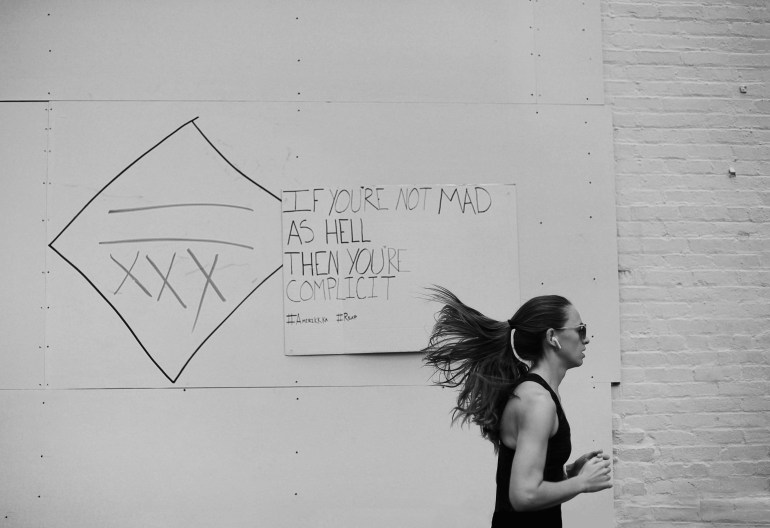 XXX
IF YOU'RE NOT MAD
AS HELL
THEN YOU'RE
COMPLICIT